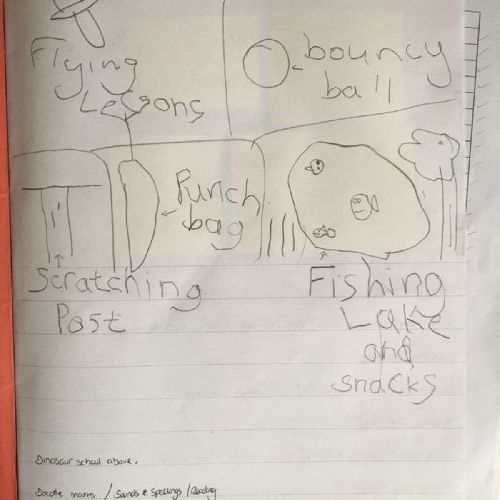 Flying
Lessons
bouncy
ball
Punch
bag
Scratching
Post
Fishing
Lake
and
snacks
Dinosaur school above.
Doodle maths / Sounds & Spellings / Reading